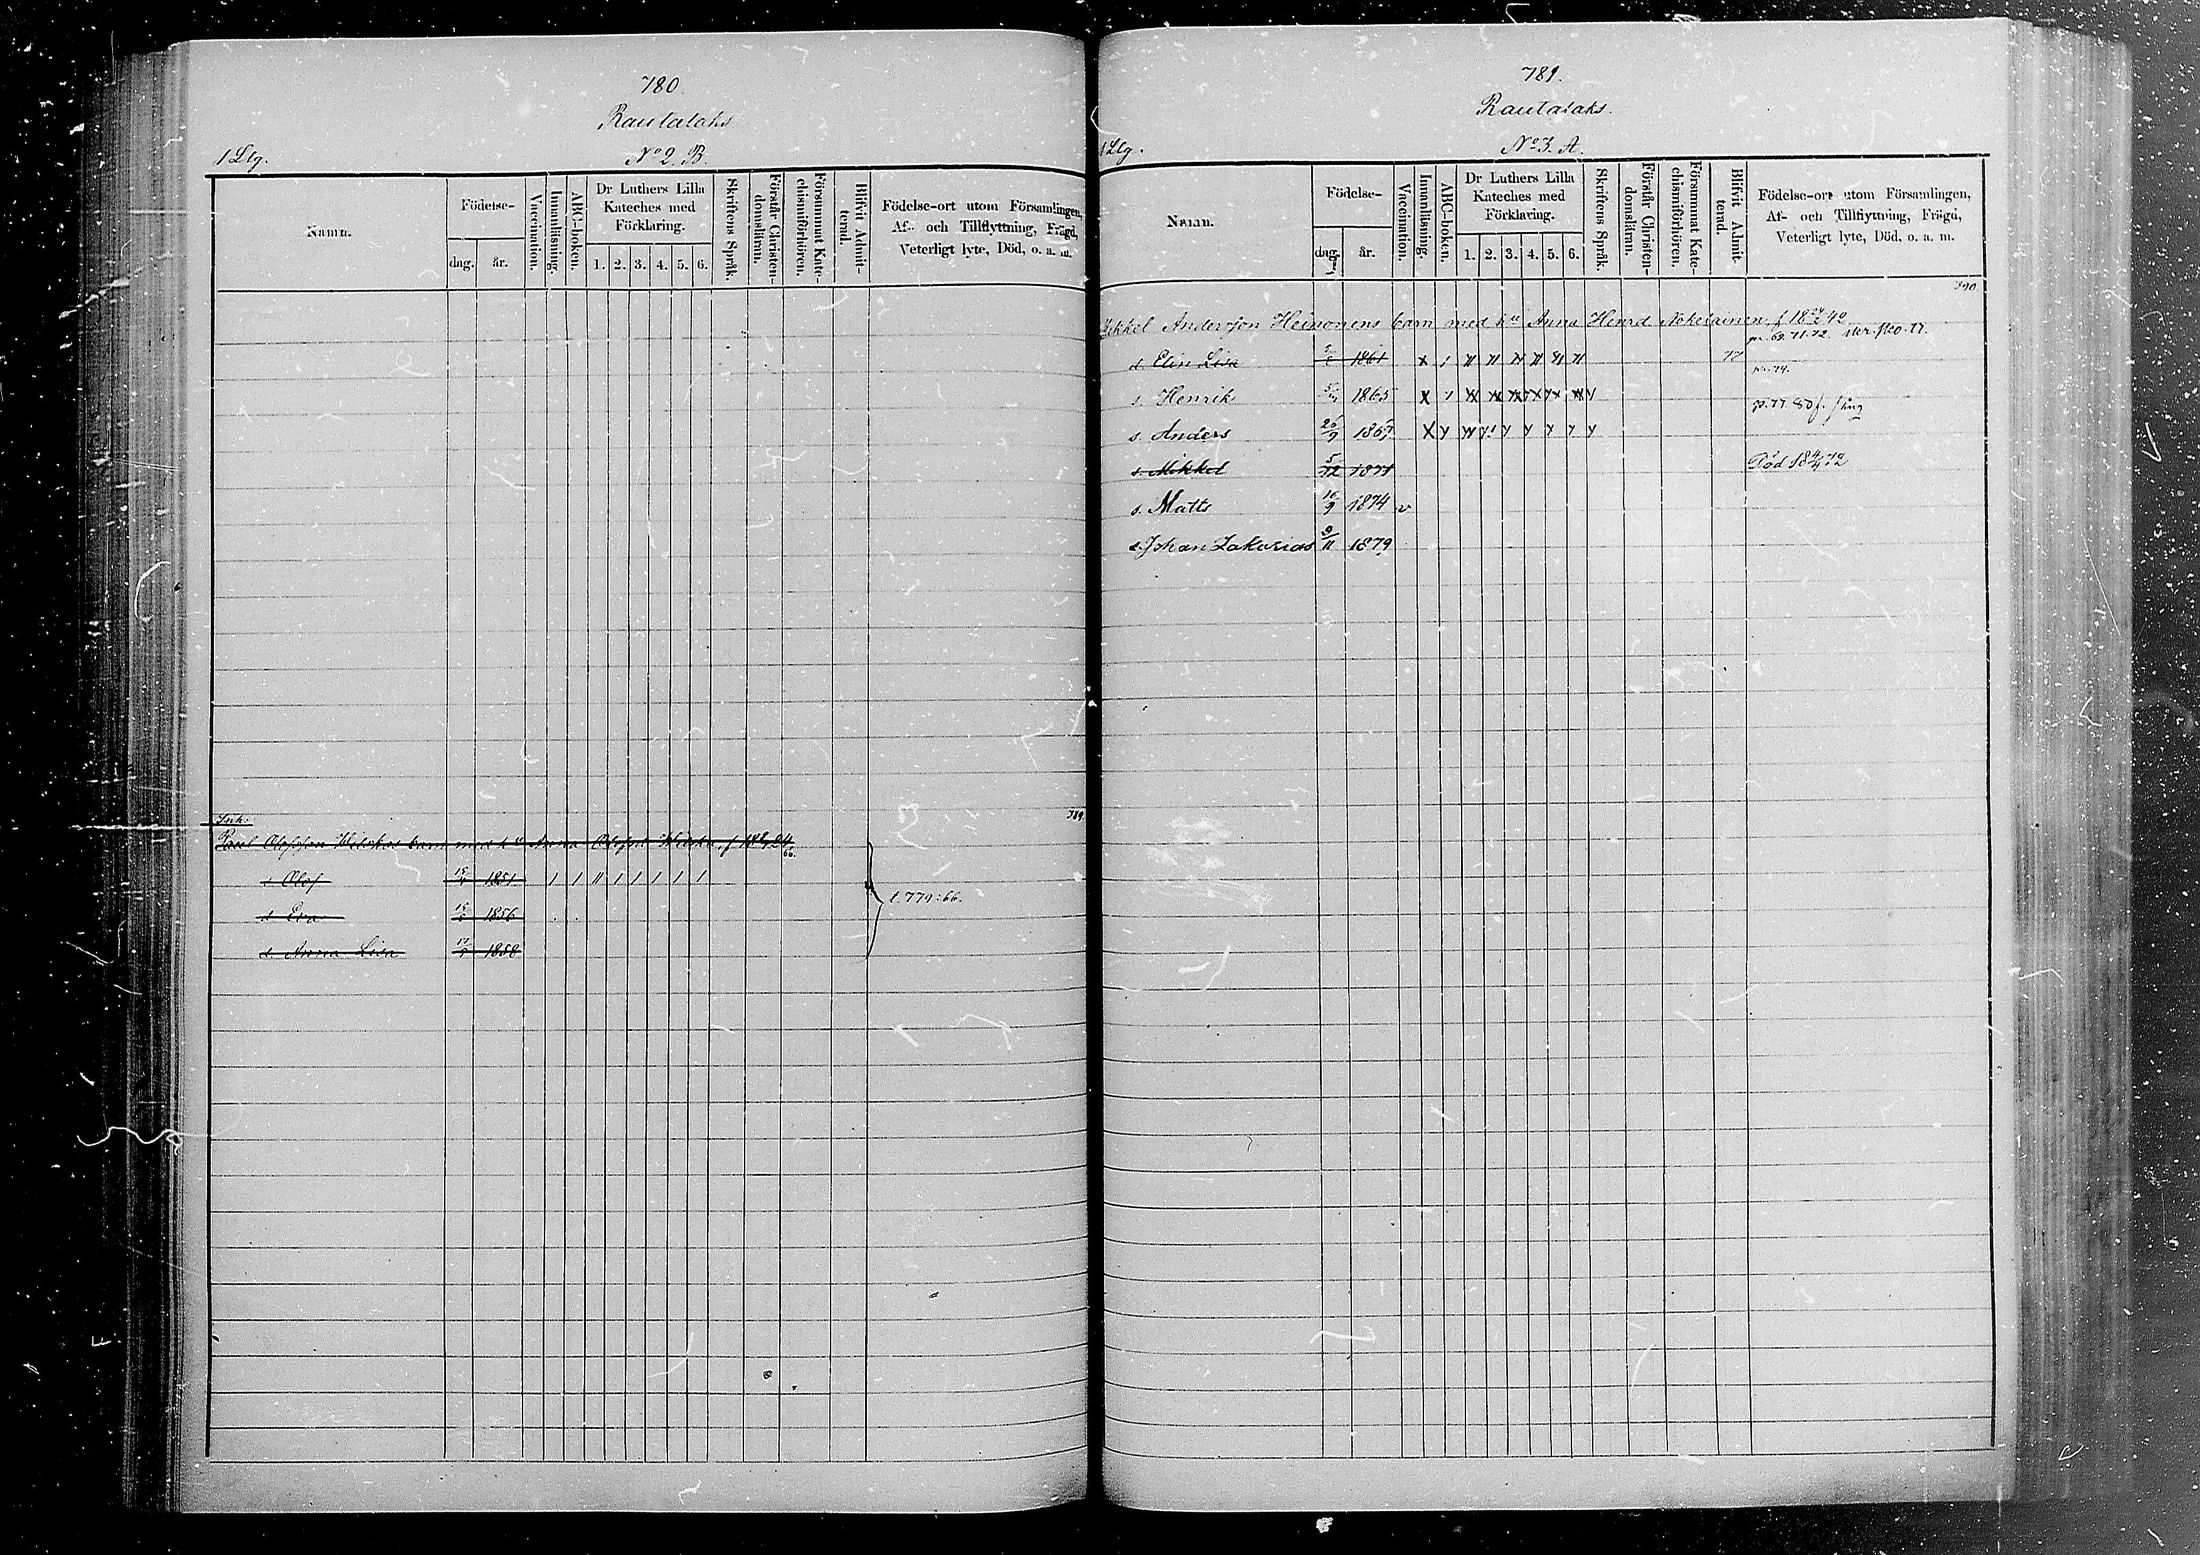 780.
Rautalaks
1 Llg.
No 2. B.
Namn.
Födelse-
dag.
år.
Vaccination.
Innanläsning.
ABC-boken.
Dr Luthers Lilla
Kateches med
Förklaring.
1. 2. 3. 4. 5. 6.
Skriftens Språk.
Förstår Christen-
domsläran.
Försummat Kate-
chismiförhören.
Blifvit Admit-
terad.
Födelse-ort utom Församlingen,
Af- och Tillflyttning, Frägd,
Veterligt lyte, Död, o. a. m.
789
Inh:
Paul Olofsson barn med hu Anna
s Olof 1851
t. 779:66.
d Eva 1856
d. Anna Lisa 1858
781.
Rautalaks.
1 Llg.
No 3. A.
Namn.
Födelse-
dag.
år.
Vaccination.
Innanläsning.
ABC-boken.
Dr Luthers Lilla
Kateches med
Förklaring.
1. 2. 3. 4. 5. 6.
Skriftens Språk.
Förstår Christen-
domsläran.
Försummat Kate-
chismiförhören.
Blifvit Admit-
terad.
Födelse-ort utom Församlingen,
Af- och Tillflyttning, Frägd,
Veterligt lyte, Död, o. a. m.
790
Mikkel Andersson Heinonens barn med hu Anna Henrd Nokelainen f 18 42
d. Elin Lisa 1861 77
s. Henrik 1865
s. Anders 26/9 1867
s. Mikkel 5/12 1871 Död 18 72
s. Matts 10/9 1874 v
s. Johan Zakarias 9/11 1879